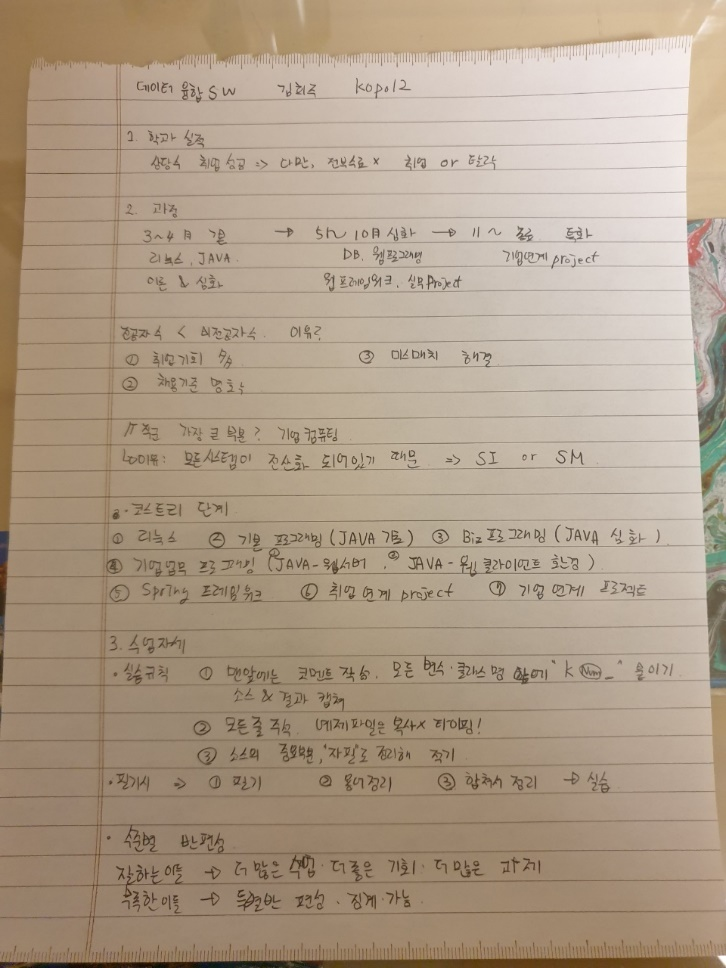 데이터 융합 SW 김희주 kopo12
1. 학과 실적
상당수 취업 성공 => 다만, 전부수료 x 취업 or 탈락
2. 과정
3~4月 기본 → 5~10月 심화 → 11~ 종료 특화
리눅스, JAVA. DB, 웹프로그램 기업연계 project
이론 & 심화 웹프레임워크, 실무Project
전공자수 < 비전공자수. 이유?
① 취업기회 多 ③ 미스매치 해결
② 채용기준 명확
IT 직군 가장 큰 부분? 기업 컴퓨팅
이유: 모든시스템이 전산화 되어있기 때문 => SI or SM
코스트리 단계
① 리눅스 ② 기본 프로그래밍 (JAVA 기초) ③ Biz프로그래밍 (JAVA 심화)
④ 기업업무 프로그래밍 (①JAVA-웹서버, ② JAVA-웹 클라이언트 환경)
⑤ Spring 프레임워크 ⑥ 취업연계 project ⑦ 기업연계 프로젝트
3. 수업자세
· 실습규칙 ① 맨앞에는 코멘트 작성. 모든 변수·클라스명 앞에 "K Num_" 붙이기
소스 & 결과 캡쳐
② 모든줄 주석. 예제파일은 복사x 타이핑!
③ 소스의 중요부분, '자필'로 정리해 적기
· 필기시 => ① 필기 ② 용어정리 ③ 함수 정리 → 실습
· 수준별 반편성
잘하는이들 → 더 많은 수업 · 더 좋은 기회 · 더 많은 과제
부족한이들 → 특별반 편성 · 징계·가능